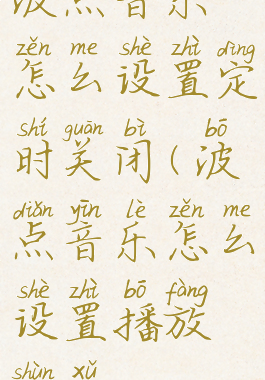 波点音乐
zěn me shè zhì dìng
怎么设置定
shí guān bì bō
时关闭(波
diǎn yīn lè zěn me
点音乐怎么
shè zhì bō fàng
设置播放
shùn xǔ